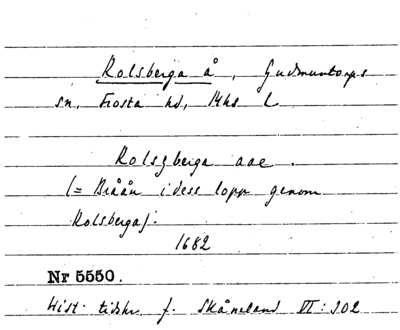 Rolsberga å, Gudmuntorps
sn, Frosta hd, Mhs L
Rolszberga aae.
(= Bråån i dess lopp genom
Rolsberga).
1682
Nr 5550.
Hist. tidskr. f. Skåneland VI: 302